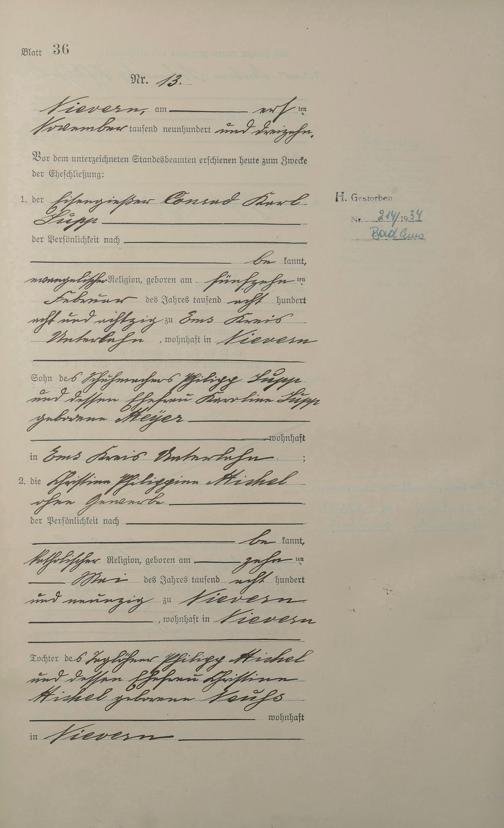 Blatt 36
Nr. 13.
Nievern, am erſten
November tauſend neunhundert und dreizehn.
Vor dem unterzeichneten Standesbeamten erſchienen heute zum Zwecke
der Eheſchließung:
1. der Eisengießer Conrad Karl
Supp
der Perſönlichkeit nach
be kannt,
evangeliſcher Religion, geboren am fünfzehnten
Februar des Jahres tauſend acht hundert
acht und achtzig zu Ems Kreis
Unterlahn, wohnhaft in Nievern
Sohn des Schuhmachers Philipp Supp
und deſſen Ehefrau Karoline Supp
geborene Meyer
wohnhaft
in Ems Kreis Unterlahn ;
2. die Chriſtine Philippine Michel
ohne Gewerbe
der Perſönlichkeit nach
be kannt,
katholiſcher Religion, geboren am zehnten
Mai des Jahres tauſend acht hundert
und neunzig zu Nievern
, wohnhaft in Nievern
Tochter des Taglöhners Philipp Michel
und deſſen Ehefrau Chriſtine
Michel geborene
wohnhaft
in Nievern
H. Gestorben
Nr. 214/1934
Bad Ems